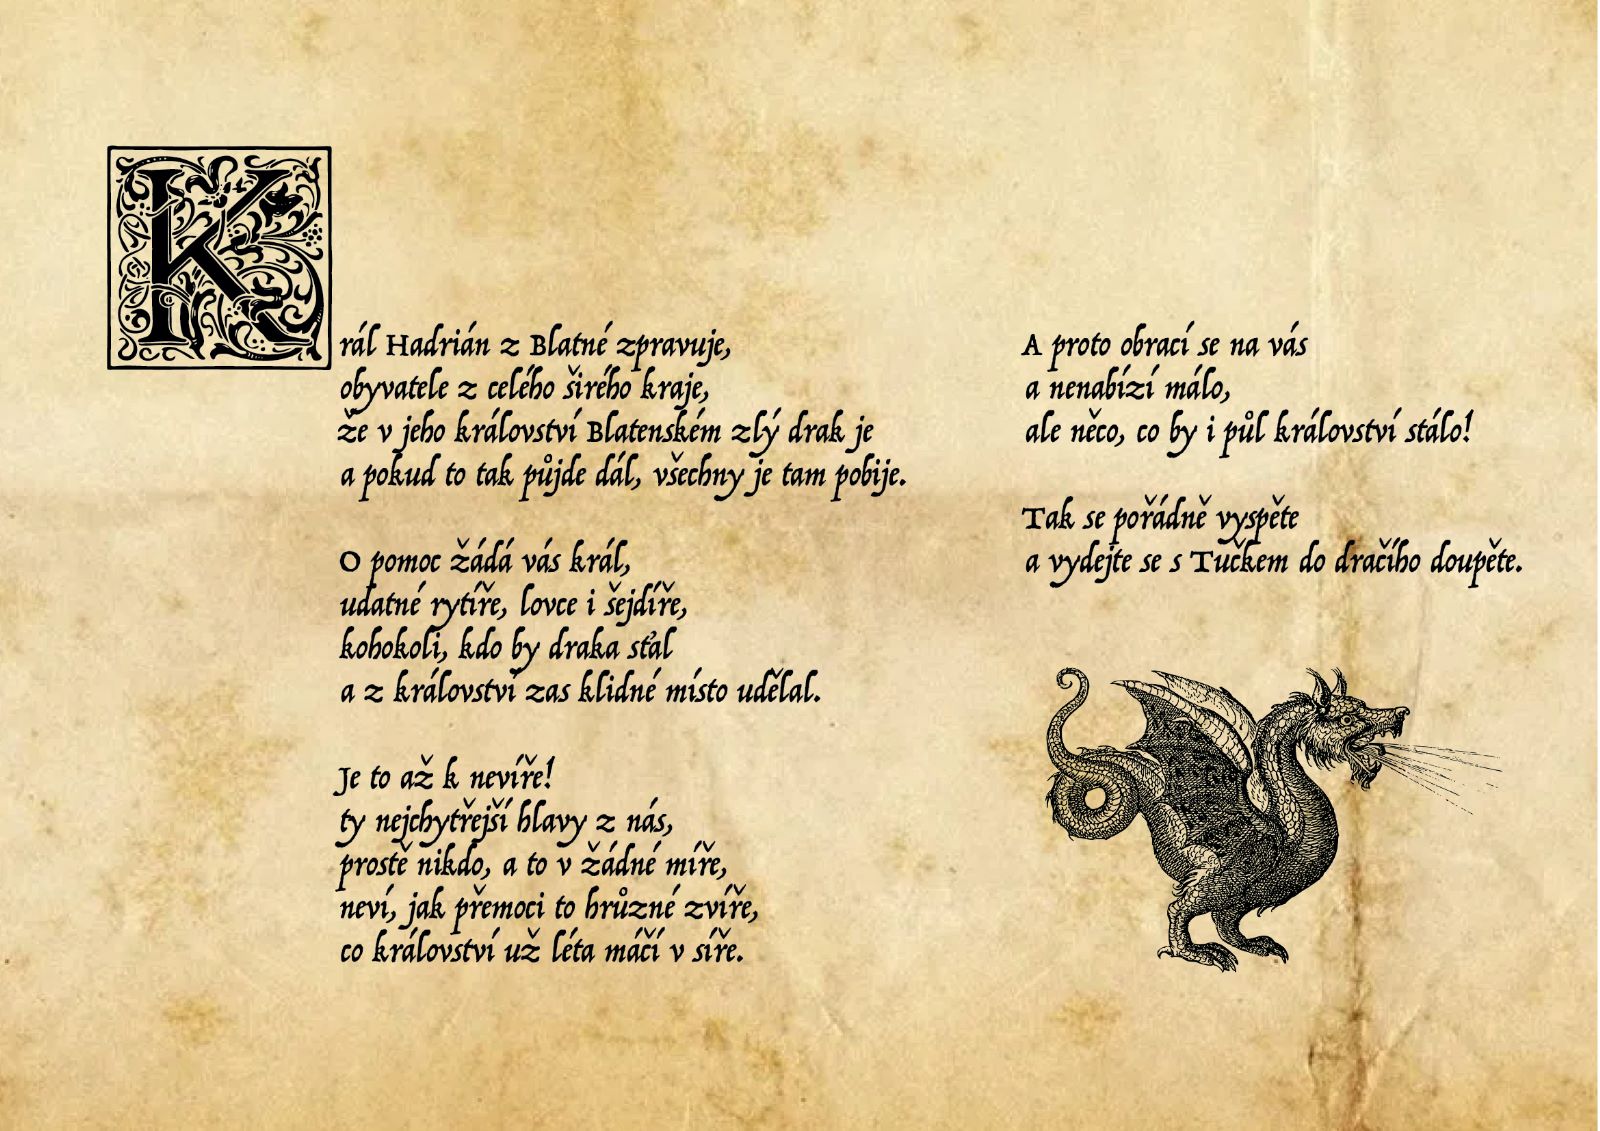 Král Hadrián z Blatné zpravuje,
obyvatele z celého širého kraje,
že v jeho království Blatenském zlý drak je
a pokud to tak půjde dál, všechny je tam pobije.
O pomoc žádá vás král,
udatné rytíře, lovce i šejdíře,
kohokoli, kdo by draka sťal
a z království zas klidné místo udělal.
Je to až k nevíře!
ty nejchytřejší hlavy z nás,
prostě nikdo, a to v žádné míře,
neví, jak přemoci to hrůzné zvíře,
co království už léta máčí v síře.
A proto obrací se na vás
a nenabízí málo,
ale něco, co by i půl království stálo!
Tak se pořádně vyspěte
a vydejte se s Tučkem do dračího doupěte.